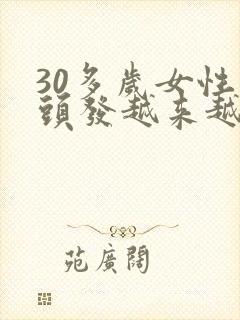 30多歲女性
頭發越来越
苑廣闊